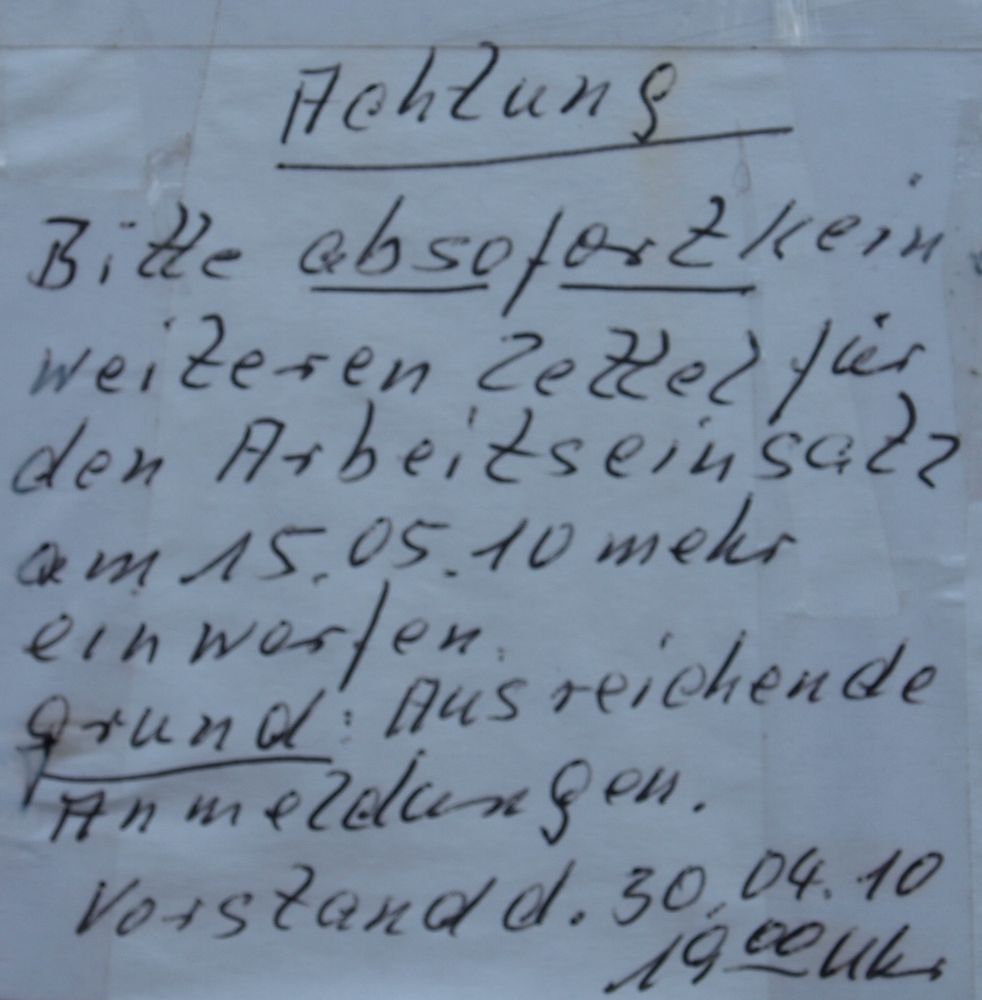 Achtung
Bitte absofort kein
weiteren Zettel für
den Arbeitseinsatz
am 15.05.10 mehr
einwerfen.
Grund: Ausreichende
Anmeldungen.
Vorstand d. 30.04.10
19 00 Uhr